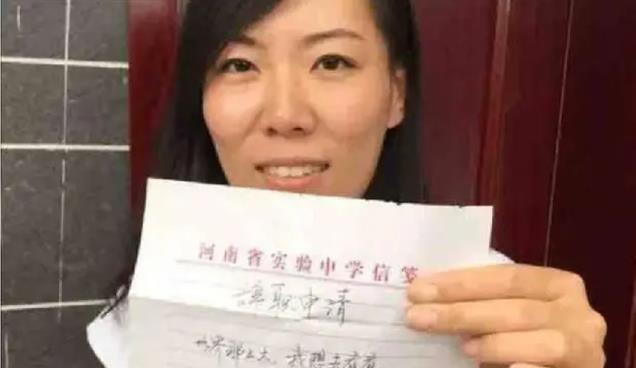 河南省实验中学信笺
辞职申请
世界那么大，我想去看看